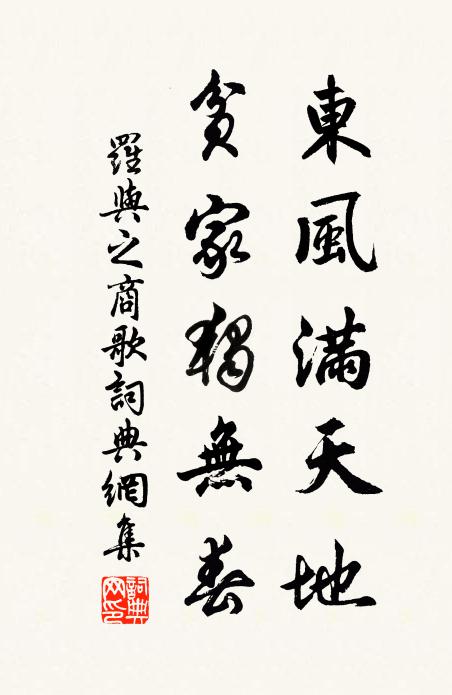 東風滿天地
貧家獨無春
羅與之商歌詞典網集
詞典網印